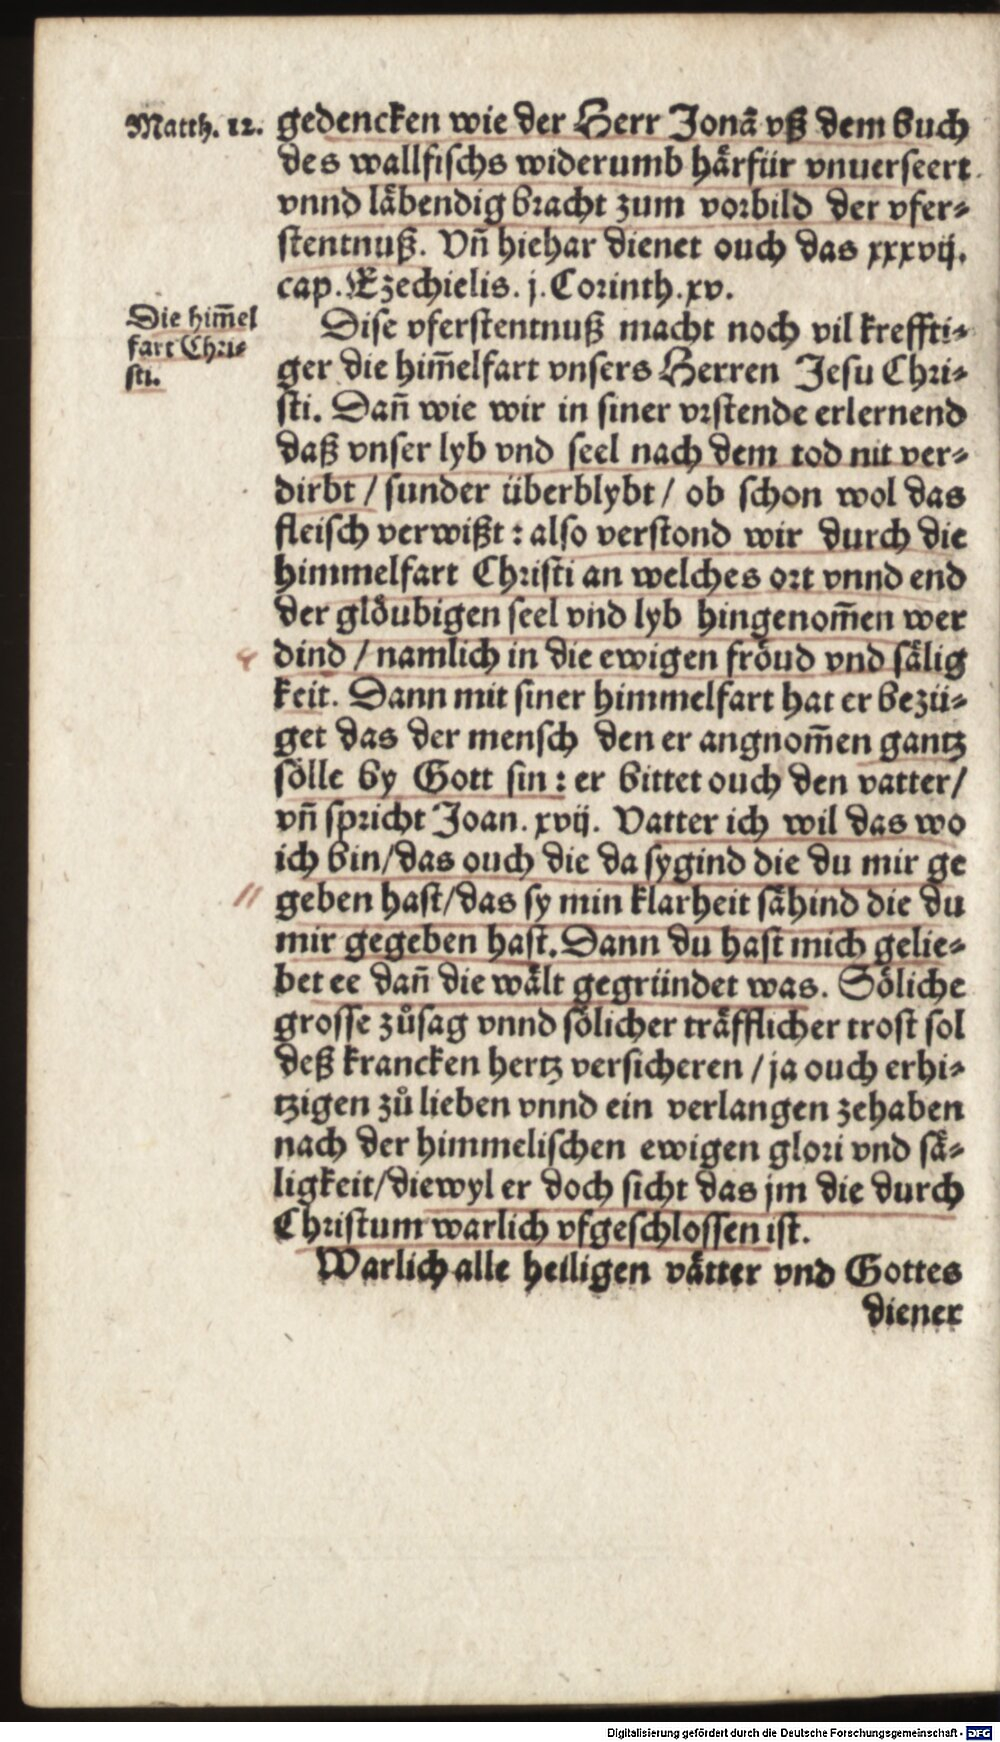 Matth. 12. gedencken wie der Herr Jonā vß dem buch
des wallfischs widerumb härfür vnuerseert
vnnd läbendig bracht zum vorbild der vfer⸗
stentnuß. Vñ hiehar dienet ouch das xxxvij.
cap. Ezechielis. j. Corinth. xv.
Die him̄el
fart Chri⸗
sti.
Dise vferstentnuß macht noch vil kreffti⸗
ger die him̄elfart vnsers Herren Jesu Chri⸗
sti. Dañ wie wir in siner vrstende erlernend
daß vnser lyb vnd seel nach dem tod nit ver⸗
dirbt / sunder überblybt / ob schon wol das
fleisch verwißt : also verstond wir durch die
himmelfart Christi an welches ort vnnd end
der glöubigen seel vnd lyb hingenom̄en wer
dind / namlich in die ewigen fröud vnd sälig
keit. Dann mit siner himmelfart hat er bezü⸗
get das der mensch den er angnom̄en gantz
sölle by Gott sin : er bittet ouch den vatter/
vñ spricht Joan. xvij. Vatter ich wil das wo
ich bin/das ouch die da sygind die du mir ge
geben hast/das sy min klarheit sähind die du
mir gegeben hast. Dann du hast mich gelie⸗
bet ee dañ die wält gegründet was. Söliche
grosse zůsag vnnd sölicher träfflicher trost sol
deß krancken hertz versicheren / ja ouch erhi⸗
tzigen zů lieben vnnd ein verlangen zehaben
nach der himmelischen ewigen glori vnd sä⸗
ligkeit/diewyl er doch sicht das jm die durch
Christum warlich vfgeschlossen ist.
Warlich alle heiligen vätter vnd Gottes
diener
Digitalisierung gefördert durch die Deutsche Forschungsgemeinschaft - DFG